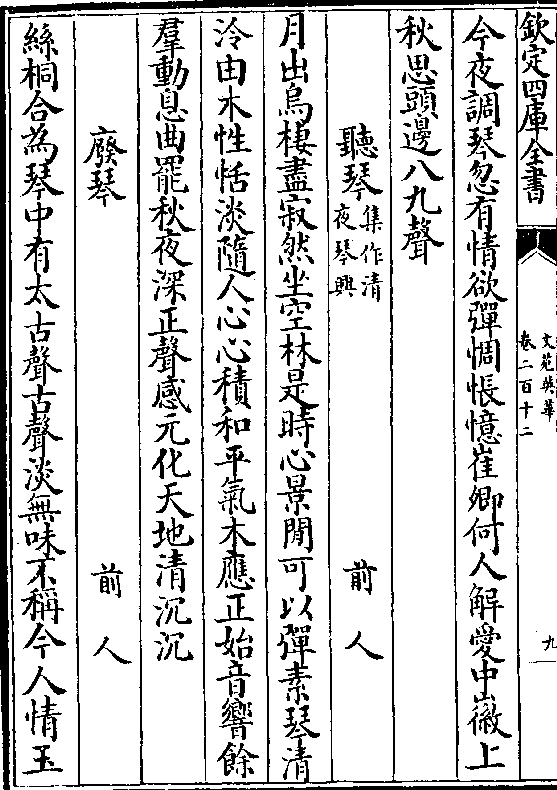 欽定四庫全書
文苑英華
卷二百十二
九
今夜調琴忽有情欲彈惆悵憶崔卿何人解愛中徽上
秋思頭邊八九聲
聽琴集作清夜琴興 前人
月出烏棲盡寂然坐空林是時心景閒可以彈素琴清
泠由木性恬淡隨人心心積和平氣木應正始音響餘
羣動息曲罷秋夜深正聲感元化天地清沉沉
廢琴 前人
絲桐合為琴中有太古聲古聲淡無味不稱今人情玉